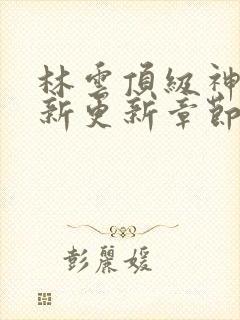 林雲頂級神
新更新章節
彭麗媛